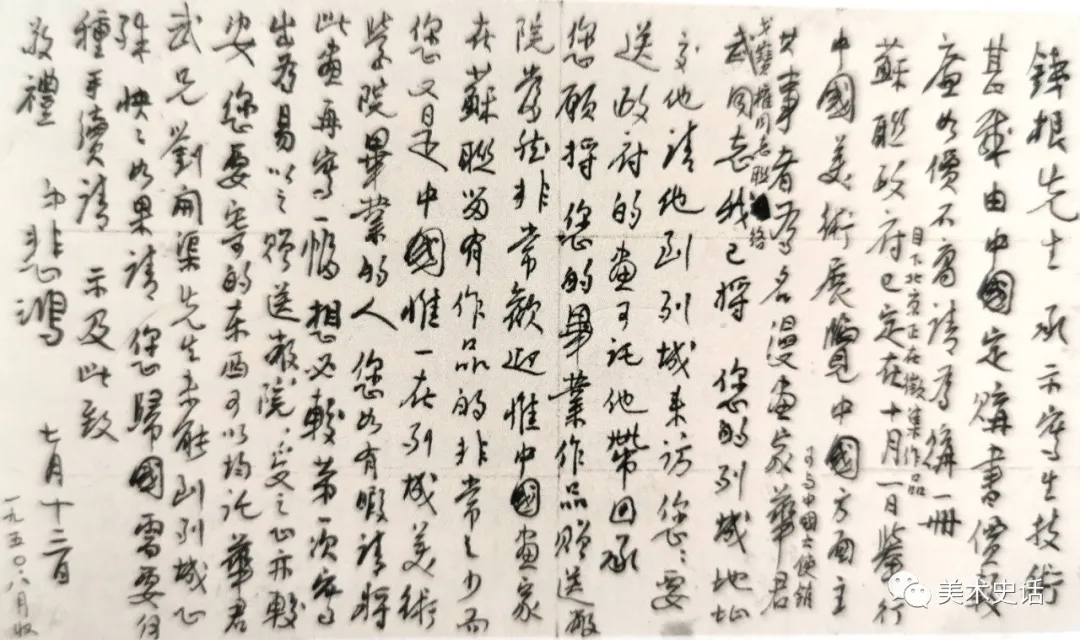 根先生 承示寫生技術
甚 由中國定購書價
廉如價不 請為購一冊
目下北京正在徵集作品
蘇聯政府已定在十月一日舉行
中國美術展覽中國方面主
可與中國大使館
其事者為名漫畫家華君
戈寶權同志聯絡
武同志我已將 您的列城地址
交他請他到列城來訪您您要
送政府的畫可託他帶回承
您願將您的畢業作品贈送敝
院當然非常歡迎惟中國畫家
在蘇聯留有作品的非常之少而
您又是中國惟一在列城美術
學院畢業的人 您如有暇請將
此畫再寫一幅想必較第一次寫
出為易以之贈送敝院,受之心亦較
安您要寄的東西可以均託華君
武兄劉開渠先生未能到列城心
殊怏怏如果請 您歸國需要何
種手續請 示及此致
敬禮 弟悲鴻 七月十二日
一九五〇.八月收
美术史话